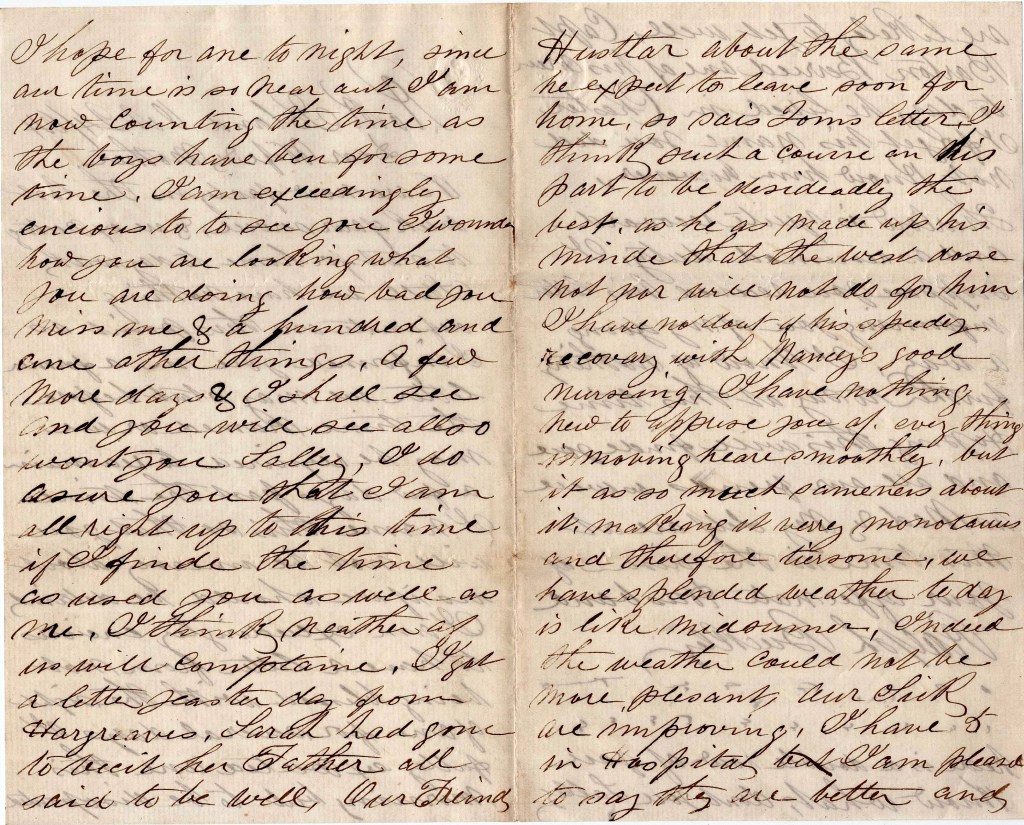 I hope for one to night, since
our time is so near out I am
now counting the time as
the boys have ben for some
time. I am exceedingly
encious to to see you I wounder
how you are looking what
you are doing how bad you
miss me & a hundred and
one other things. A few
more days & I shall see
and you will see allso
wont you Salley, I do
asure you that I am
all right up to this time
if I finde the time
as used you as well as
me. I think neather of
us will complaine. I got
a letter yeaster day from
Hargreaves. Sarah had gone
to vicit her Father all
said to be well, Our Freind
Hustlar about the same
he expet to leave soon for
home, so sais Toms letter, I
think such a course on his
part to be desideadly the
best. as he as made up his
minde that the west dose
not nor will not do for him
I have no dout of his speedy
recovary with Nancy's good
nurseing, I have nothing
new to apprise you of. evry thing
is moving heare smoothly. but
it as so much sameness about
it. making it verry monotanus
and therefore tiersome, we
have splended weather to day
is like midsumer, Indeed
the weather could not be
more plesant, our Sick
are improving, I have 5
in Hospital but I am pleased
to say they are better and